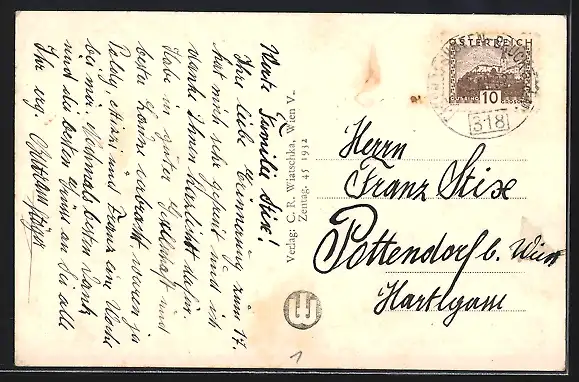 Werte Familie Stix!
Ihre liebe Erinnerung zum 17.
hat mich sehr gefreut und ich
danke Ihnen herzlichst dafür.
Habe in guter Gesellschaft und
bester Laune verbracht waren ja
Poldy, und Franz eine Woche
bei mir. Nochmals besten Dank
und die besten Grüße an Sie alle
Ihr erg.
Verlag: C. R. Wiatschka, Wien V.
Zentag. 45 1932
ÖSTERREICH
10
318
Herrn
Franz Stix
Pottendorf b. Wien
Hartlgasse
1